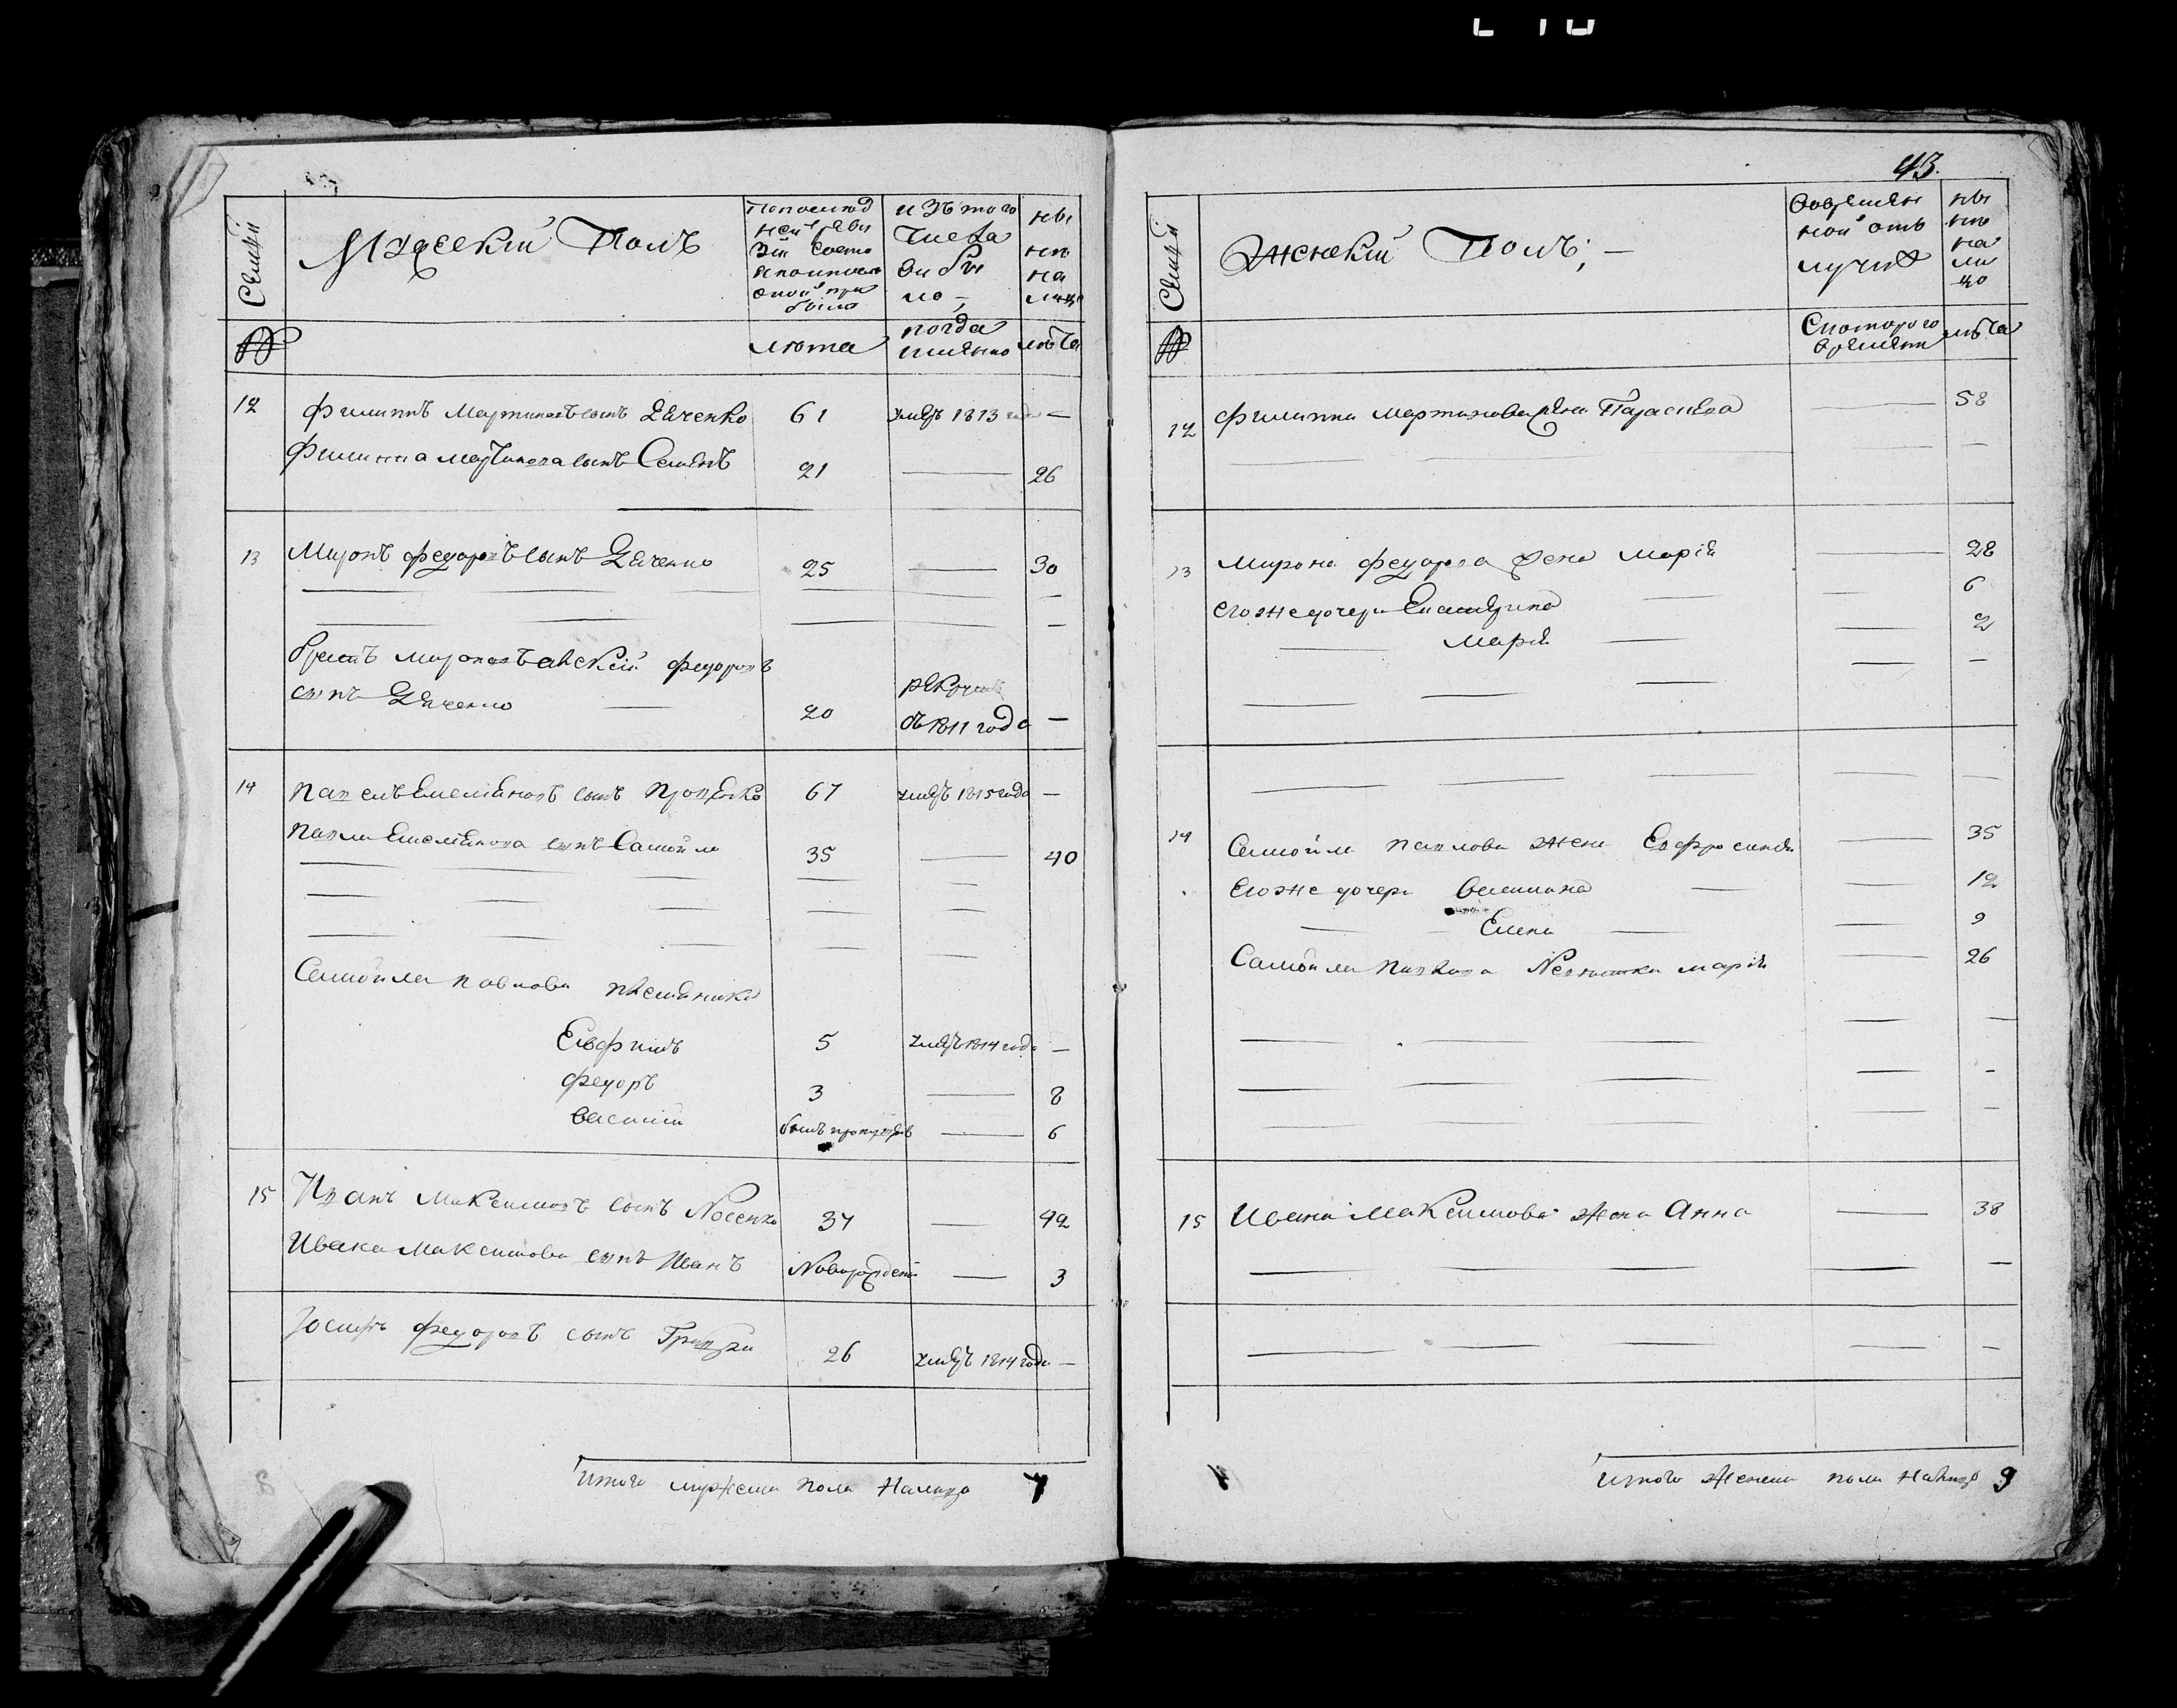 43.
Семьи
Мужескій Полъ
По послед
ней реви
зіи состо
яло и после
оной при
было
изъ того
числа
выбы
ло
ны
не
на
лицо
№
лета
когда
имянно
лѣта
12
Филиппъ Мартиновъ сынъ Дяченко
61
умеръ 1813 года
—
Филиппа Мартинова сынъ Семенъ
21
26
13
Миронъ Федоровъ сынъ Дяченко
25
30
братъ Мироновъ Алексій Федоровъ
сынъ Дяченко
20
рекрут
въ 1811 года
—
14
Павелъ Емельяновъ сынъ Проценко
67
умеръ 1815 года
—
Павла Емельянова сынъ Самойла
35
40
Самойла Павлова племяники
Ефимъ
5
умеръ 1814 года
—
Федоръ
3
8
Василій
былъ пропущенъ
6
15
Иванъ Максимовъ сынъ Носенко
37
42
Ивана Максимова сынъ Иванъ
Новорожденъ
3
Іосифъ Федоровъ сынъ
26
умеръ 1814 года
—
Итого мужеска пола налицо 7
Семьи
Женскій Полъ; —
Во времян
ной отъ
лучке
ны
не
на
ли
цо
№
С котораго
времяни
лѣта
12
Филиппа Мартинова жена Параскева
58
13
Мирона Федорова жена Марія
28
Его же дочери Екатерина
6
Марія
2
14
Самойла Павлова жена Евфросинія
35
Его же дочери
12
Елена
9
Самойла Павлова невѣстка Марія
26
15
Ивана Максимова жена Анна
38
Итого женска пола налицо 9